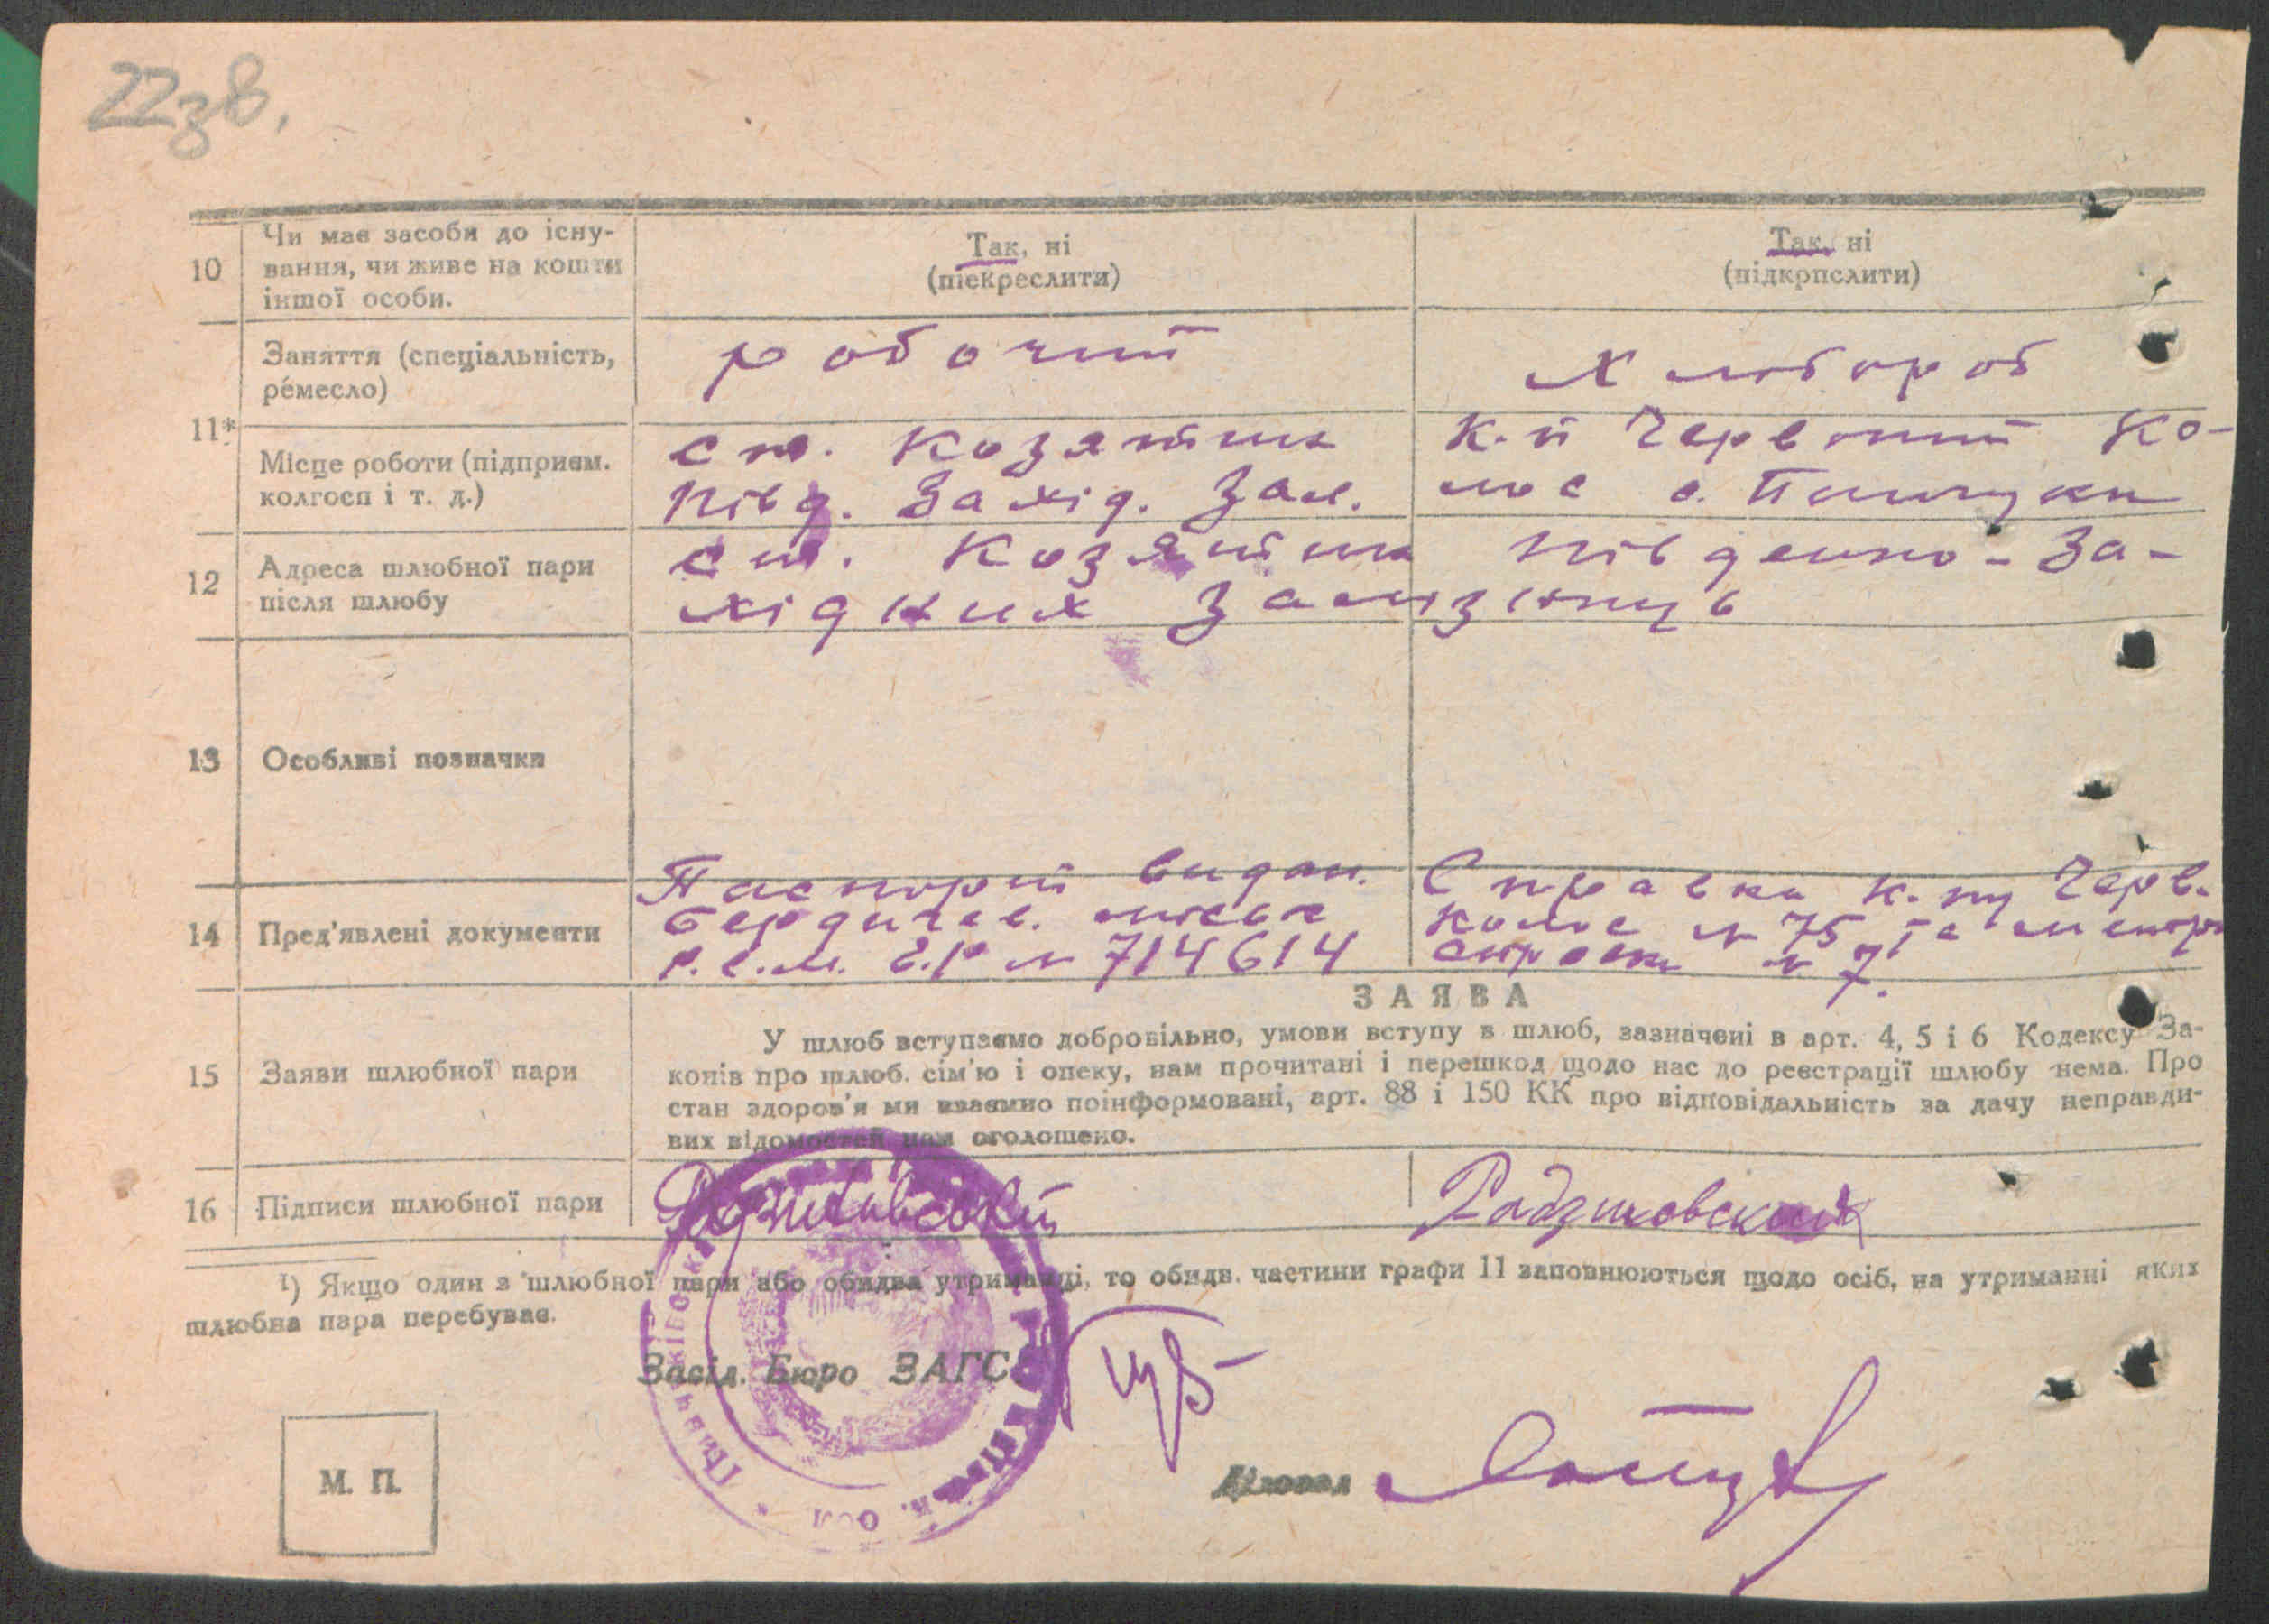 22зв.
10 Чи має засоби до існу-
вання, чи живе на кошти
іншої особи.
Так, ні
(піекреслити)
Так, ні
(підкрпслити)
11* Заняття (спеціальність,
ре́месло)
робочий
хлібороб
Місце роботи (підприєм.
колгосп і т. д.)
ст. Козятин
Півд. Захід. Зал.
к-п Червоний Ко-
лос с. Пищуки
12 Адреса шлюбної пари
після шлюбу
ст. Козятин Південно-За-
хідних Залізниць
13 Особливі позначки
14 Пред'явлені документи
Паспорт видан.
Бердичев. міськ
Р.С.М. №714614
Справка к-пу Черв.
колос № 75 та
справка № 7.
15 Заяви шлюбної пари
ЗАЯВА
У шлюб вступаємо добровільно, умови вступу в шлюб, зазначені в арт. 4, 5 і 6 Кодексу За-
конів про шлюб. сім'ю і опеку, нам прочитані і перешкод щодо нас до реєстрації шлюбу нема. Про
стан здоров'я ми взаємно поінформовані, арт. 88 і 150 КК про відповідальність за дачу неправди-
вих відомостей нам оголошено.
16 Підписи шлюбної пари
Радзиховская
1) Якщо один з шлюбної пари або обидва утриманці, то обидв. частини графи 11 заповнюються щодо осіб, на утриманні яких
шлюбна пара перебуває.
Завід. Бюро ЗАГС
М. П.
Діловод